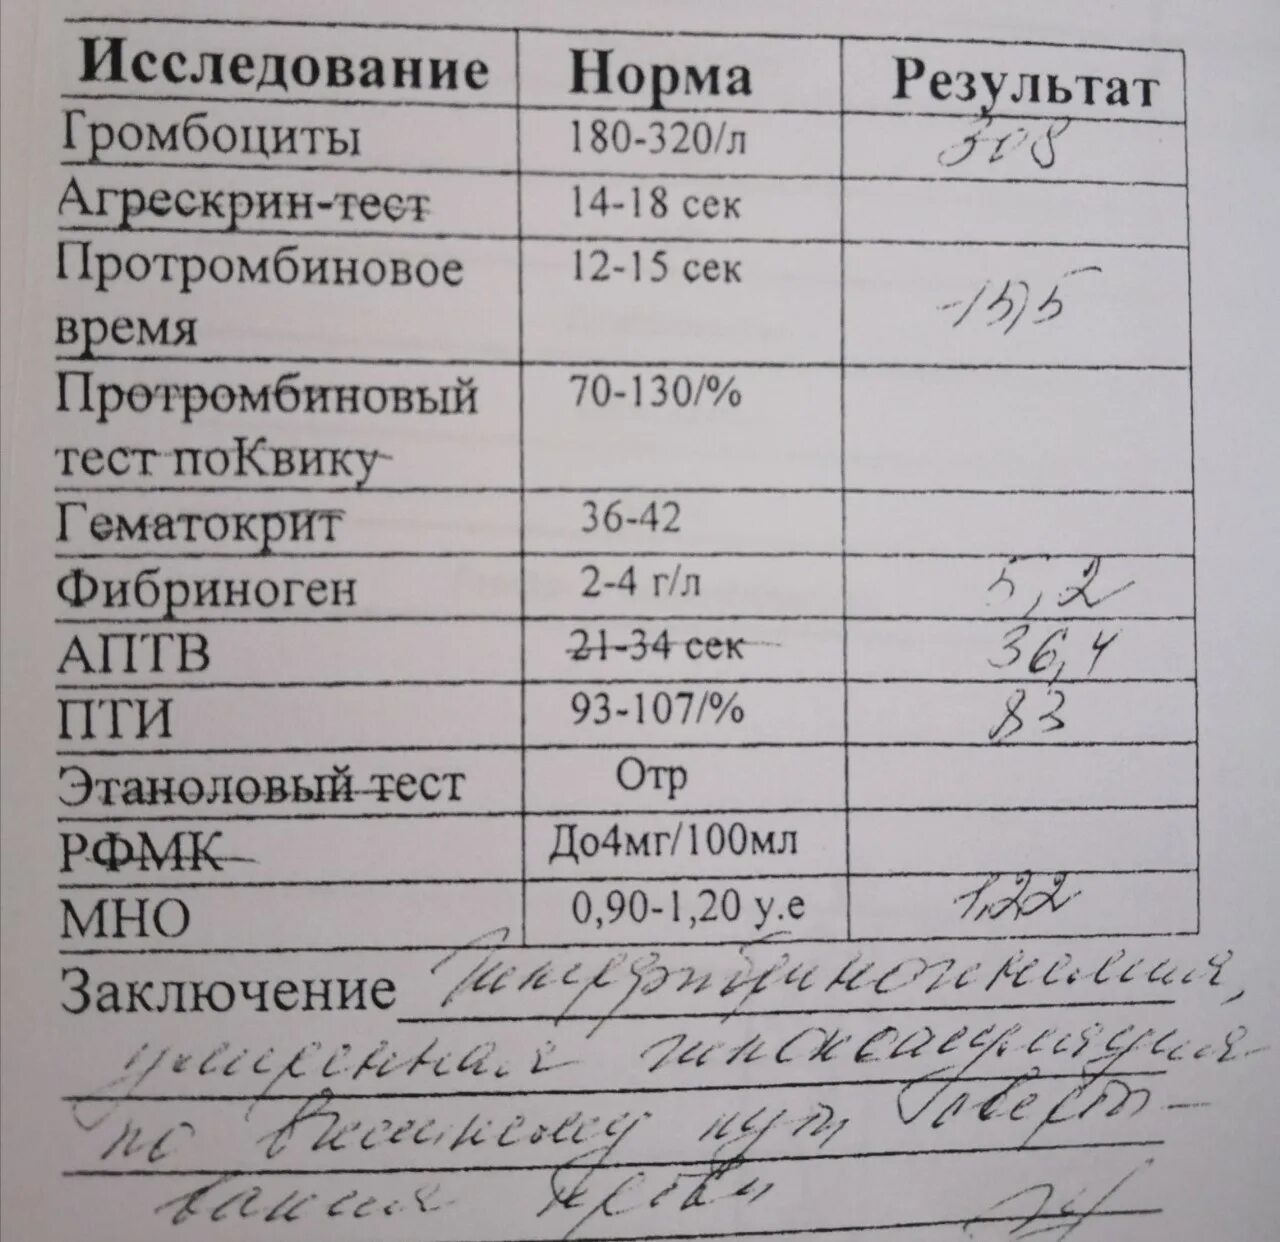 Исследование Норма Результат
Тромбоциты 180-320/л 308
Агрескрин-тест 14-18 сек
Протромбиновое 12-15 сек
время -15,5
Протромбиновый 70-130/%
тест поКвику
Гематокрит 36-42
Фибриноген 2-4 г/л 5,2
АПТВ 21-34 сек 36,4
ПТИ 93-107/% 83
Этаноловый тест Отр
РФМК До4мг/100мл
МНО 0,90-1,20 у.е 1,22
Заключение Гиперфибриногенемия,
умеренная гипокоагуляция
по внешнему пути сверты-
вания крови